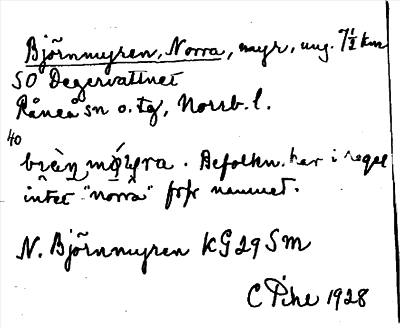 Björnmyren, Norra, myr, ung. 7½ km
SO Degervattnet
Råneå sn o. tg, Norrb. l.
40
Befolkn. har i regel
intet "norra" för namnet.
N. Björnmyren KG 29 SM
C Pihl 1928